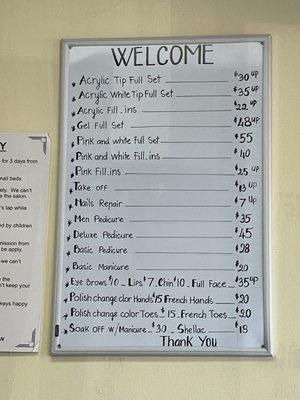 WELCOME
Acrylic Tip Full Set $30 up
Acrylic White Tip Full Set $35 up
Acrylic Fill.ins $22 up
Gel Full Set $48 up
Pink and white Full Set $55
Pink and white Fill.ins $40
Pink Fill.ins $25 up
Take off $13 up
Nails Repair $7 up
Men Pedicure $35
Deluxe Pedicure $45
Basic Pedicure $28
Basic Manicure $20
Eye Brows $10 _ Lips $7 _ Chin $10 _ Full Face $35 up
Polish change color Hands $15 French Hands $20
Polish change color Toes $15 _ French Toes $20
Soak off w/Manicure $30 _ Shellac $18
Thank You
Y
for 3 days from
nail beds.
ely. We can't
e the salon.
's lap while
d by children
mission from
be apply.
we can't
the
n't keep your
ways happy